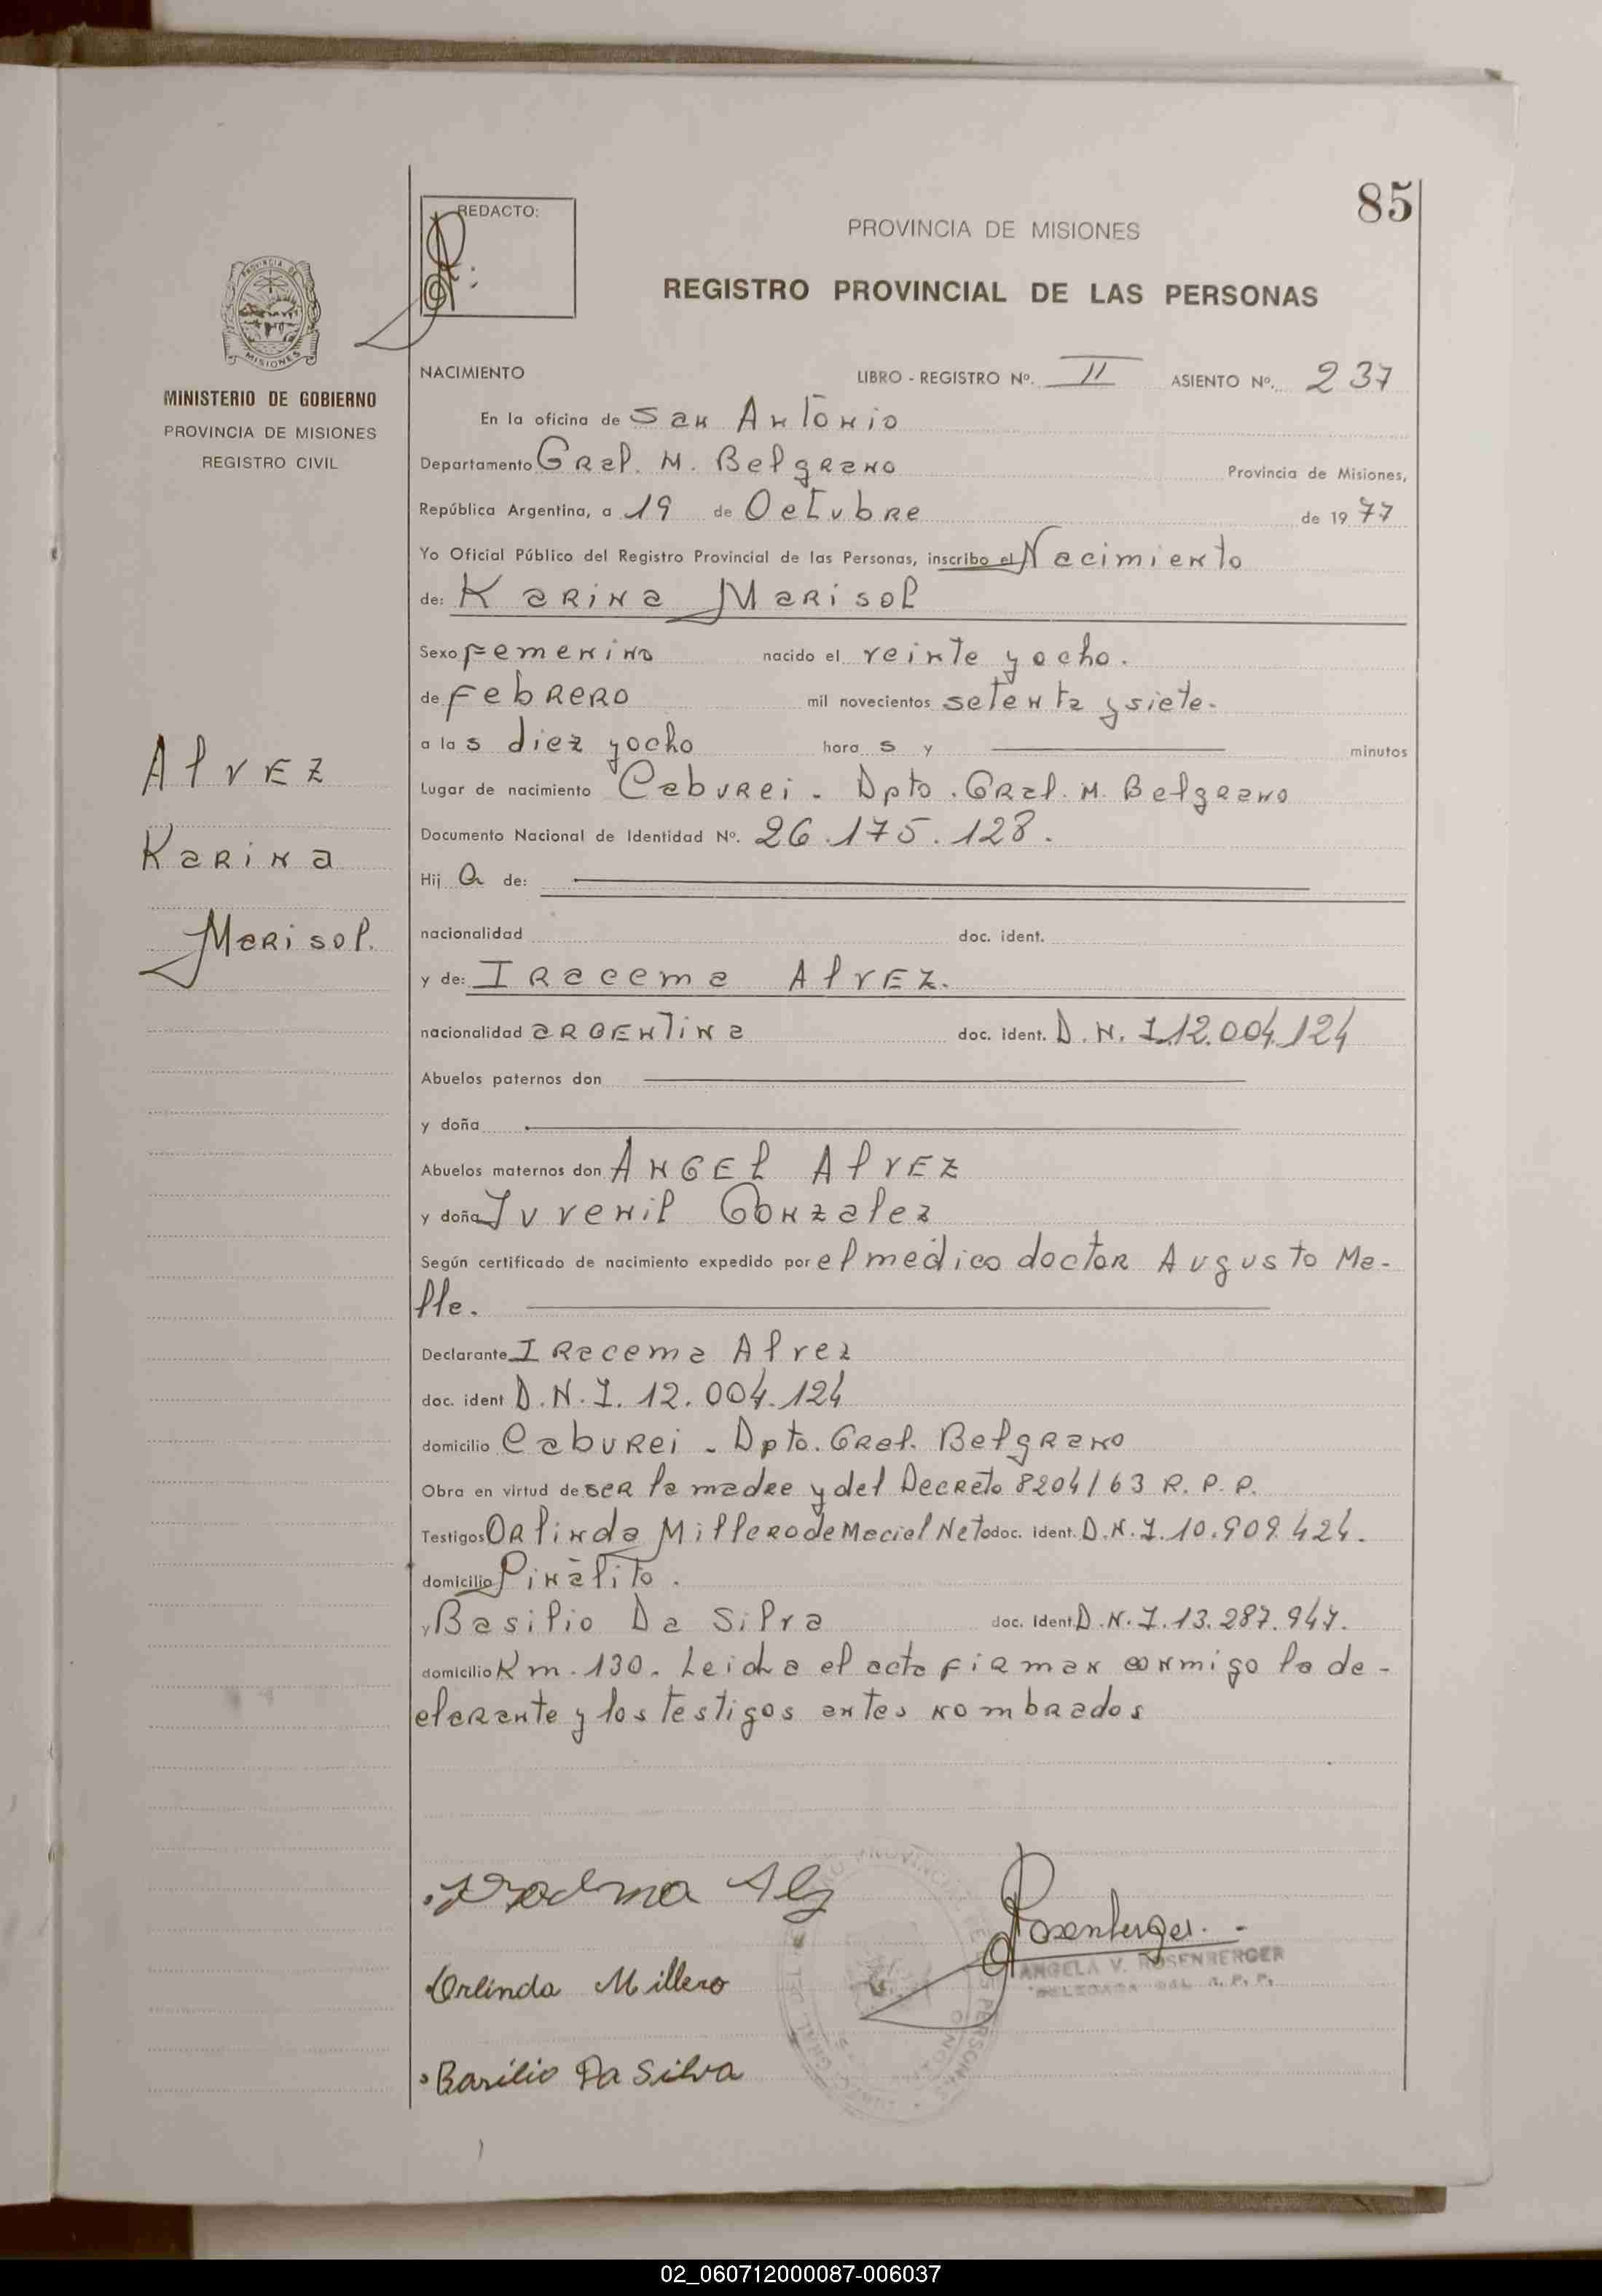 85
REDACTO:
PROVINCIA DE MISIONES
REGISTRO PROVINCIAL DE LAS PERSONAS
MISIONES
MINISTERIO DE GOBIERNO
PROVINCIA DE MISIONES
REGISTRO CIVIL
Alvez
Karina
Marisol.
NACIMIENTO LIBRO - REGISTRO Nº. II ASIENTO Nº. 237
En la oficina de San Antonio
Departamento Gral. M. Belgrano Provincia de Misiones,
República Argentina, a 19 de Octubre de 1977
Yo Oficial Público del Registro Provincial de las Personas, inscribo el Nacimiento
de: Karina Marisol
Sexo Femenino nacido el veinte y ocho.
de Febrero mil novecientos setenta y siete.
a las diez y ocho horas y minutos
Lugar de nacimiento Caburei - Dpto. Gral. M. Belgrano
Documento Nacional de Identidad Nº. 26.175.128.
Hija de:
nacionalidad doc. ident.
y de: Iracema Alvez.
nacionalidad argentina doc. ident. D.N.I. 12.004.124
Abuelos paternos don
y doña
Abuelos maternos don Angel Alvez
y doña Juvenil Gonzalez
Según certificado de nacimiento expedido por el médico doctor Augusto Me-
lle.
Declarante Iracema Alvez
doc. ident D.N.I. 12.004.124
domicilio Caburei - Dpto. Gral. Belgrano
Obra en virtud de ser la madre y del Decreto 8204/63 R.P.P.
Testigos Orlinda Millero de Maciel Neto doc. ident. D.N.I. 10.909.424.
domicilio Piñalito.
y Basilio Da Silva doc. ident. D.N.I. 13.287.947.
domicilio Km. 130. Leida el acta firman conmigo la de-
clarante y los testigos antes nombrados
Rosenberger.
ANGELA V. ROSENBERGER
DELEGADA DEL R. P. P.
Orlinda Millero
Basilio Da Silva
02_060712000087-006037